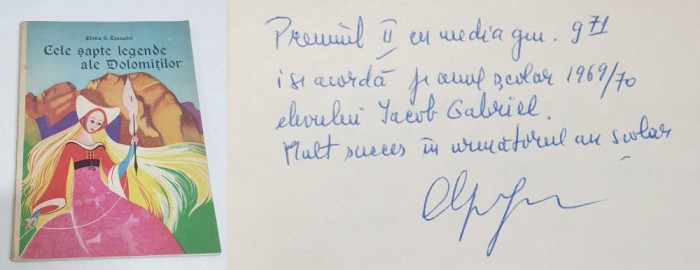 Elena G. Tessadri
Cele șapte legende
ale Dolomiților
Premiul II cu media gen. 9 71
i se acordă pe anul școlar 1969/70
elevului Iacob Gabriel.
Mult succes în următorul an școlar